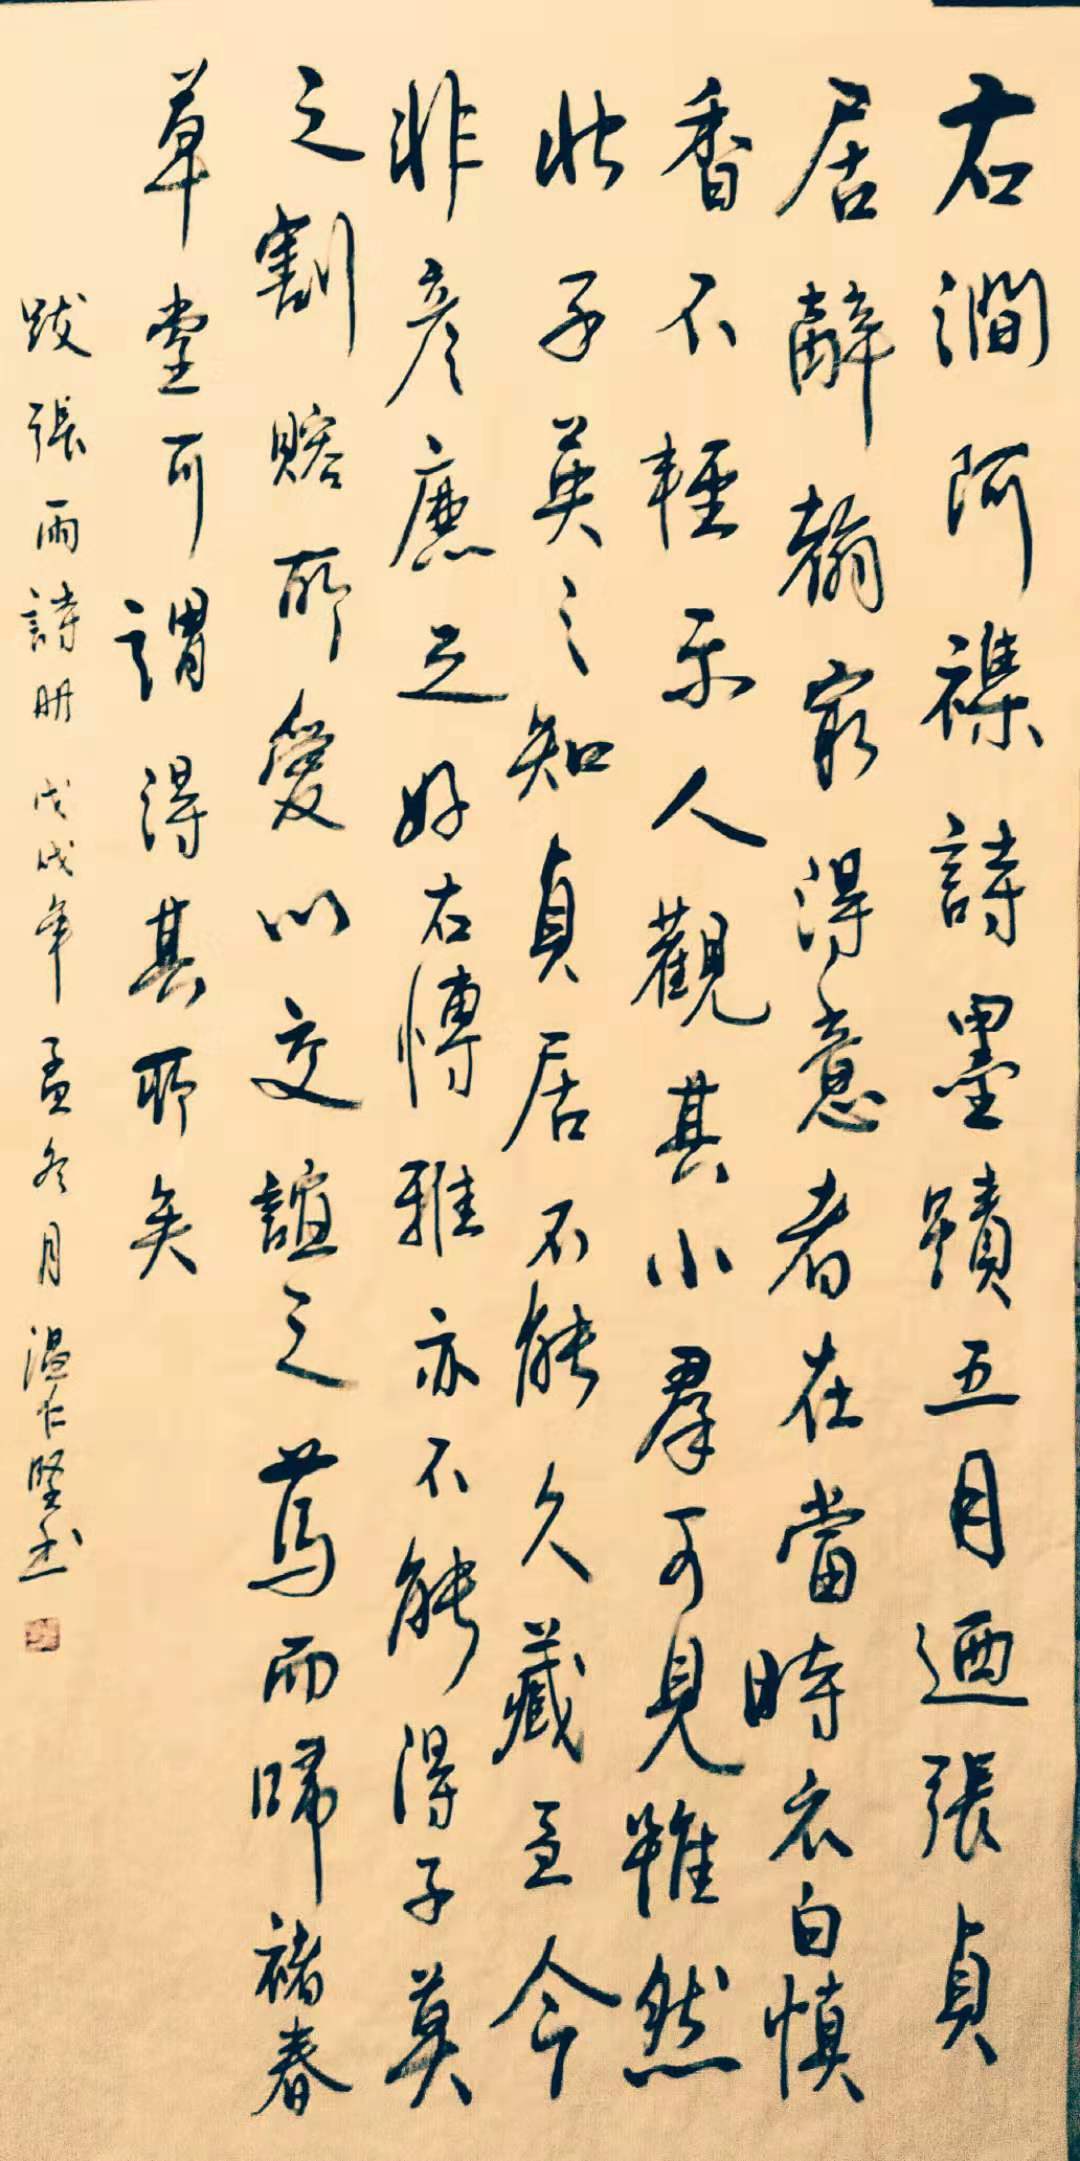 右澗阿襍詩墨蹟五月迺張貞
居辭翰最得意者在當時衣白慎
香不輕示人觀其小羣可見雖然
此子英之知貞居不能久藏至今
非彦廉之好古博雅亦不能得子英
之割賂所愛以交誼之篤而歸褚春
草堂可謂得其所矣
跋張雨詩册 戊戌年孟冬月 温仁堅书